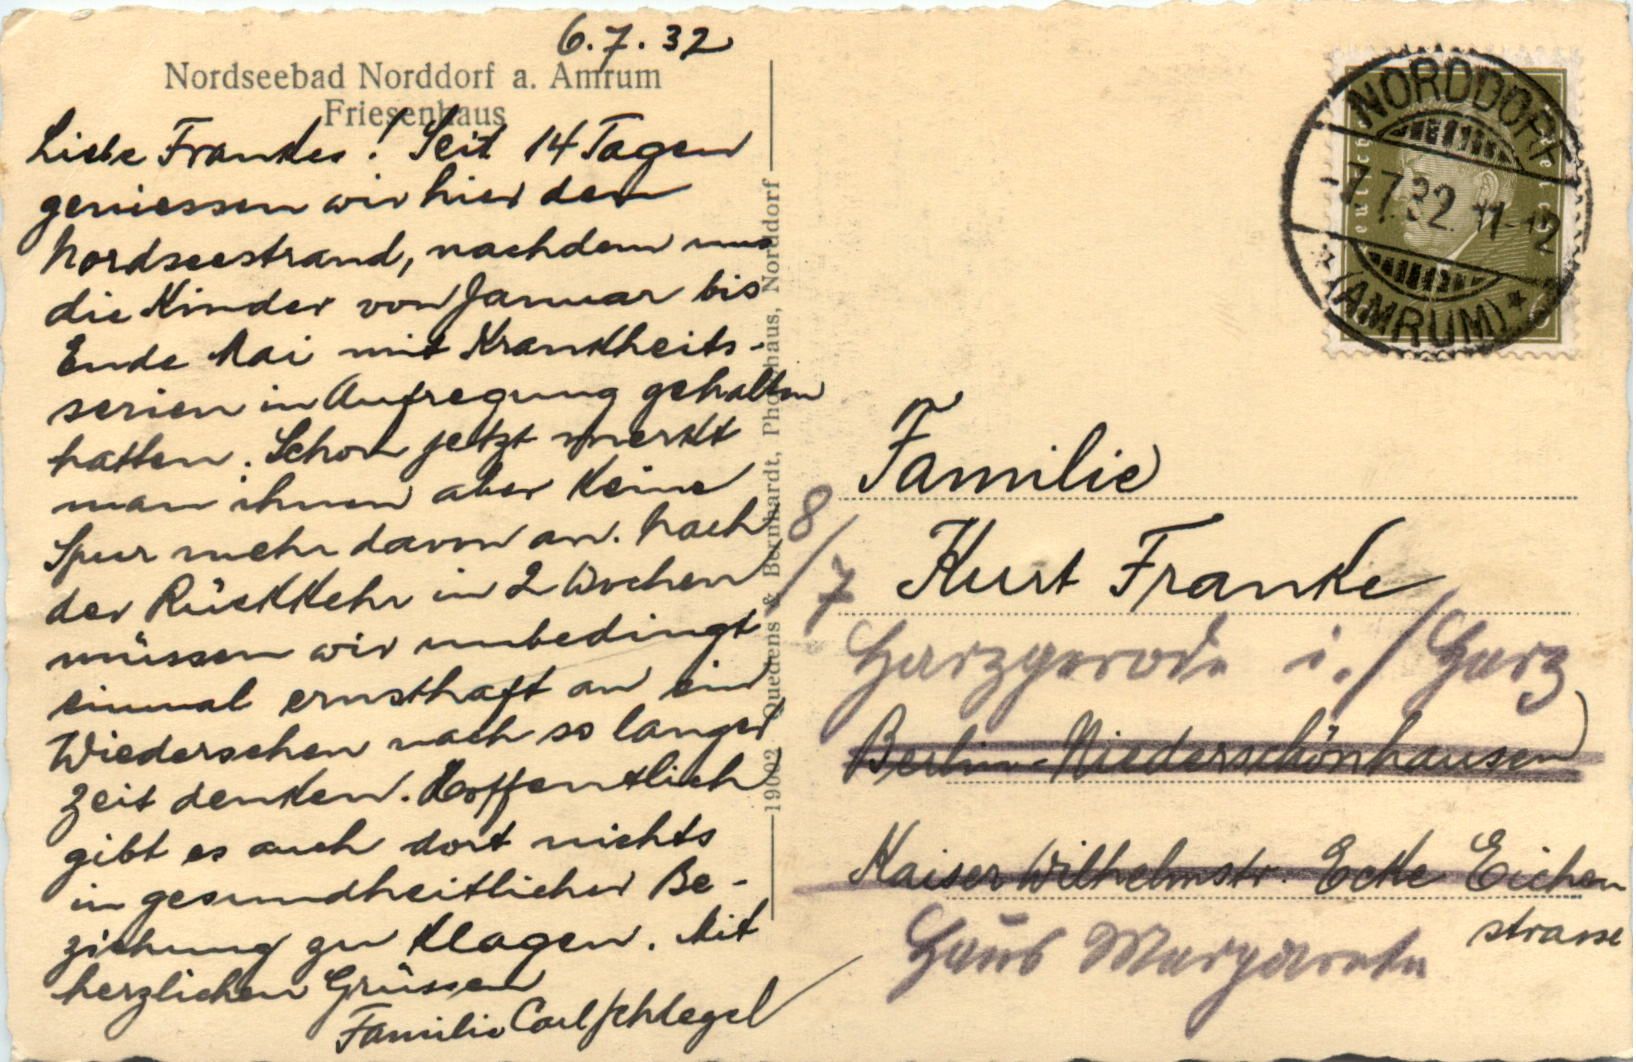 6.7.32
Nordseebad Norddorf a. Amrum
Friesenhaus
Liebe Frankes! Seit 14 Tagen
geniessen wir hier den
Nordseestrand, nachdem uns
die Kinder von Januar bis
Ende Mai mit Krankheits-
serien in Aufregung gehalten
hatten. Schon jetzt merkt
man ihnen aber keine
Spur mehr davon an. Nach
der Rückkehr in 2 Wochen
müssen wir unbedingt
einmal ernsthaft an ein
Wiedersehen nach so langer
Zeit denken. Hoffentlich
gibt es auch dort nichts
in gesundheitlicher Be-
ziehung zu klagen. Mit
herzlichen Grüssen
Familie Carl Schlegel
19002 Quedens & Bernhardt, Photohaus, Norddorf
NORDDORF
-7.7.32. 11-12
* (AMRUM) *
Deutsches Reich
Familie
8/7
Kurt Franke
Harzgerode i./Harz
Berlin-Niederschönhausen
Kaiser Wilhelmstr. Ecke Eichen
strasse
Haus Margarete